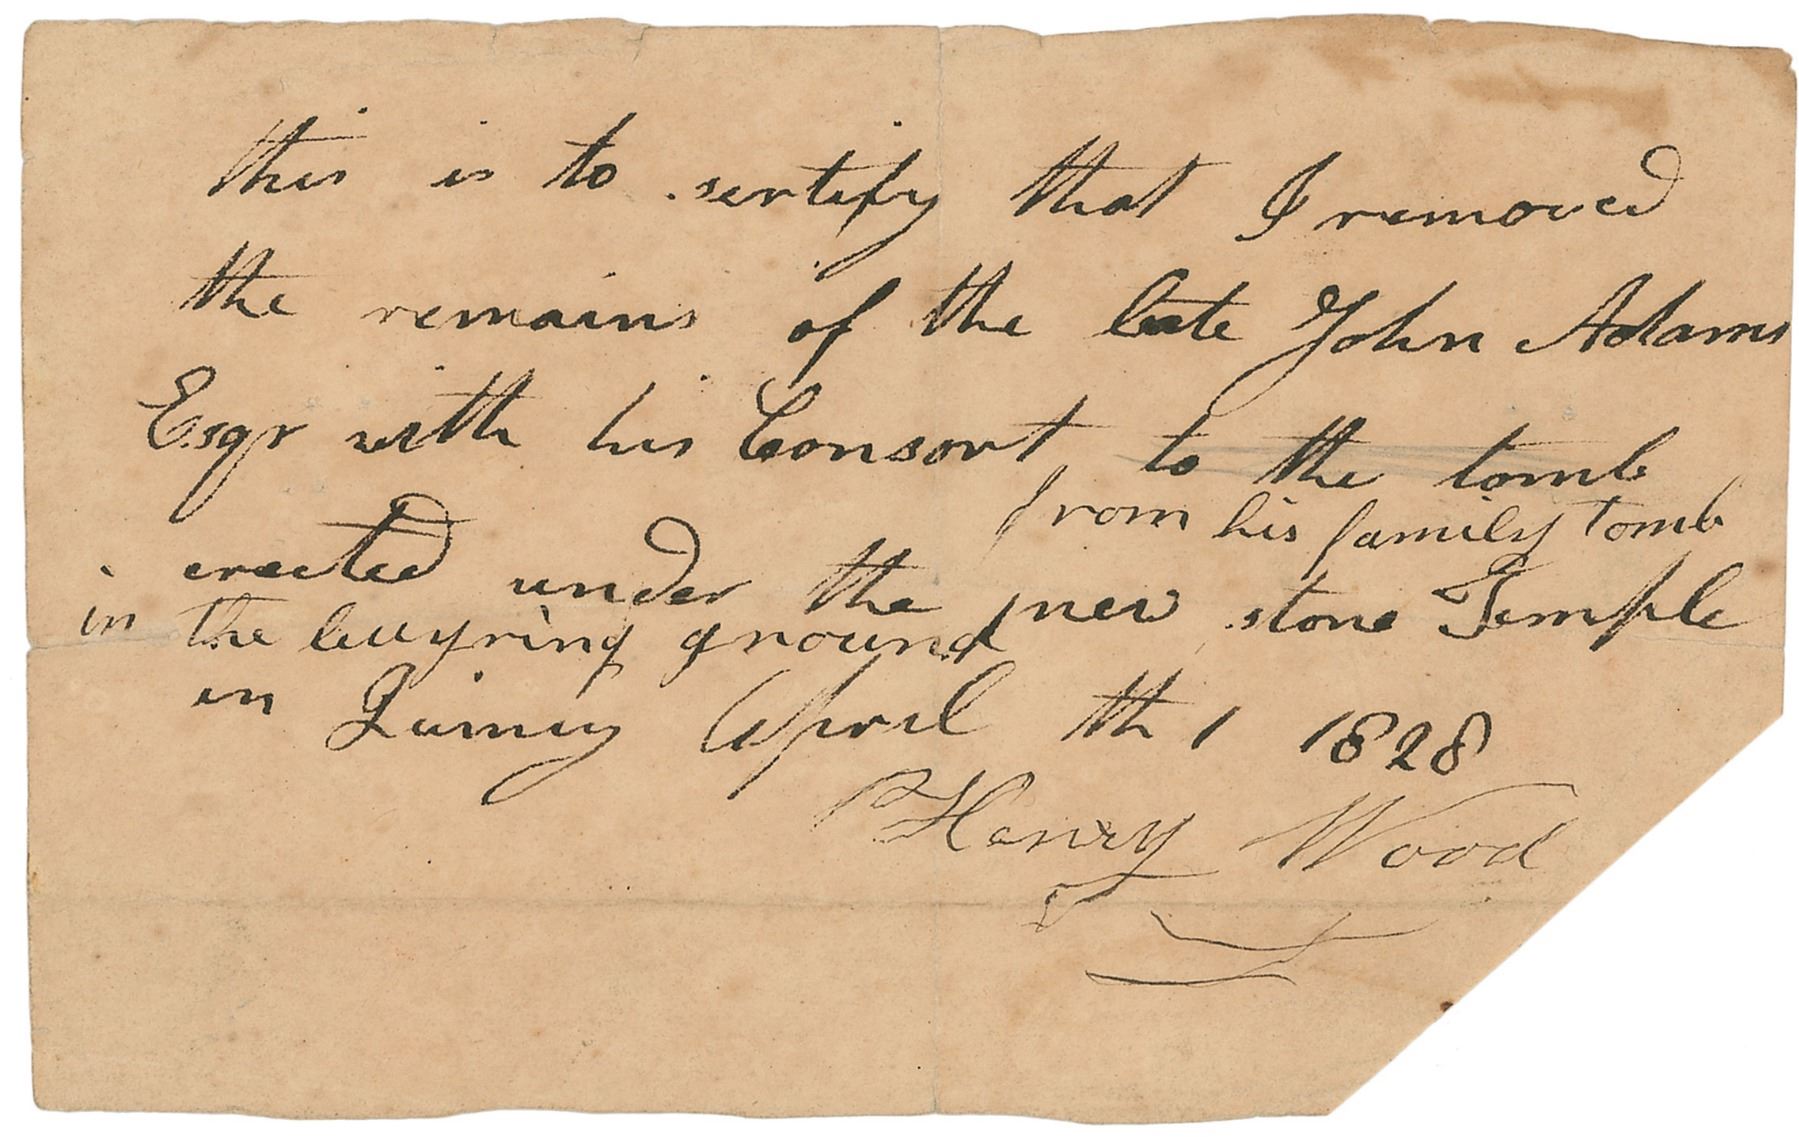 this is to sertify that I removed
the remains of the late John Adams
Esqr with his Consort to the tomb
from his family tomb
erected under the new stone Temple
in the beuyring ground
in Quincy April th 1 1828
Henry Wood